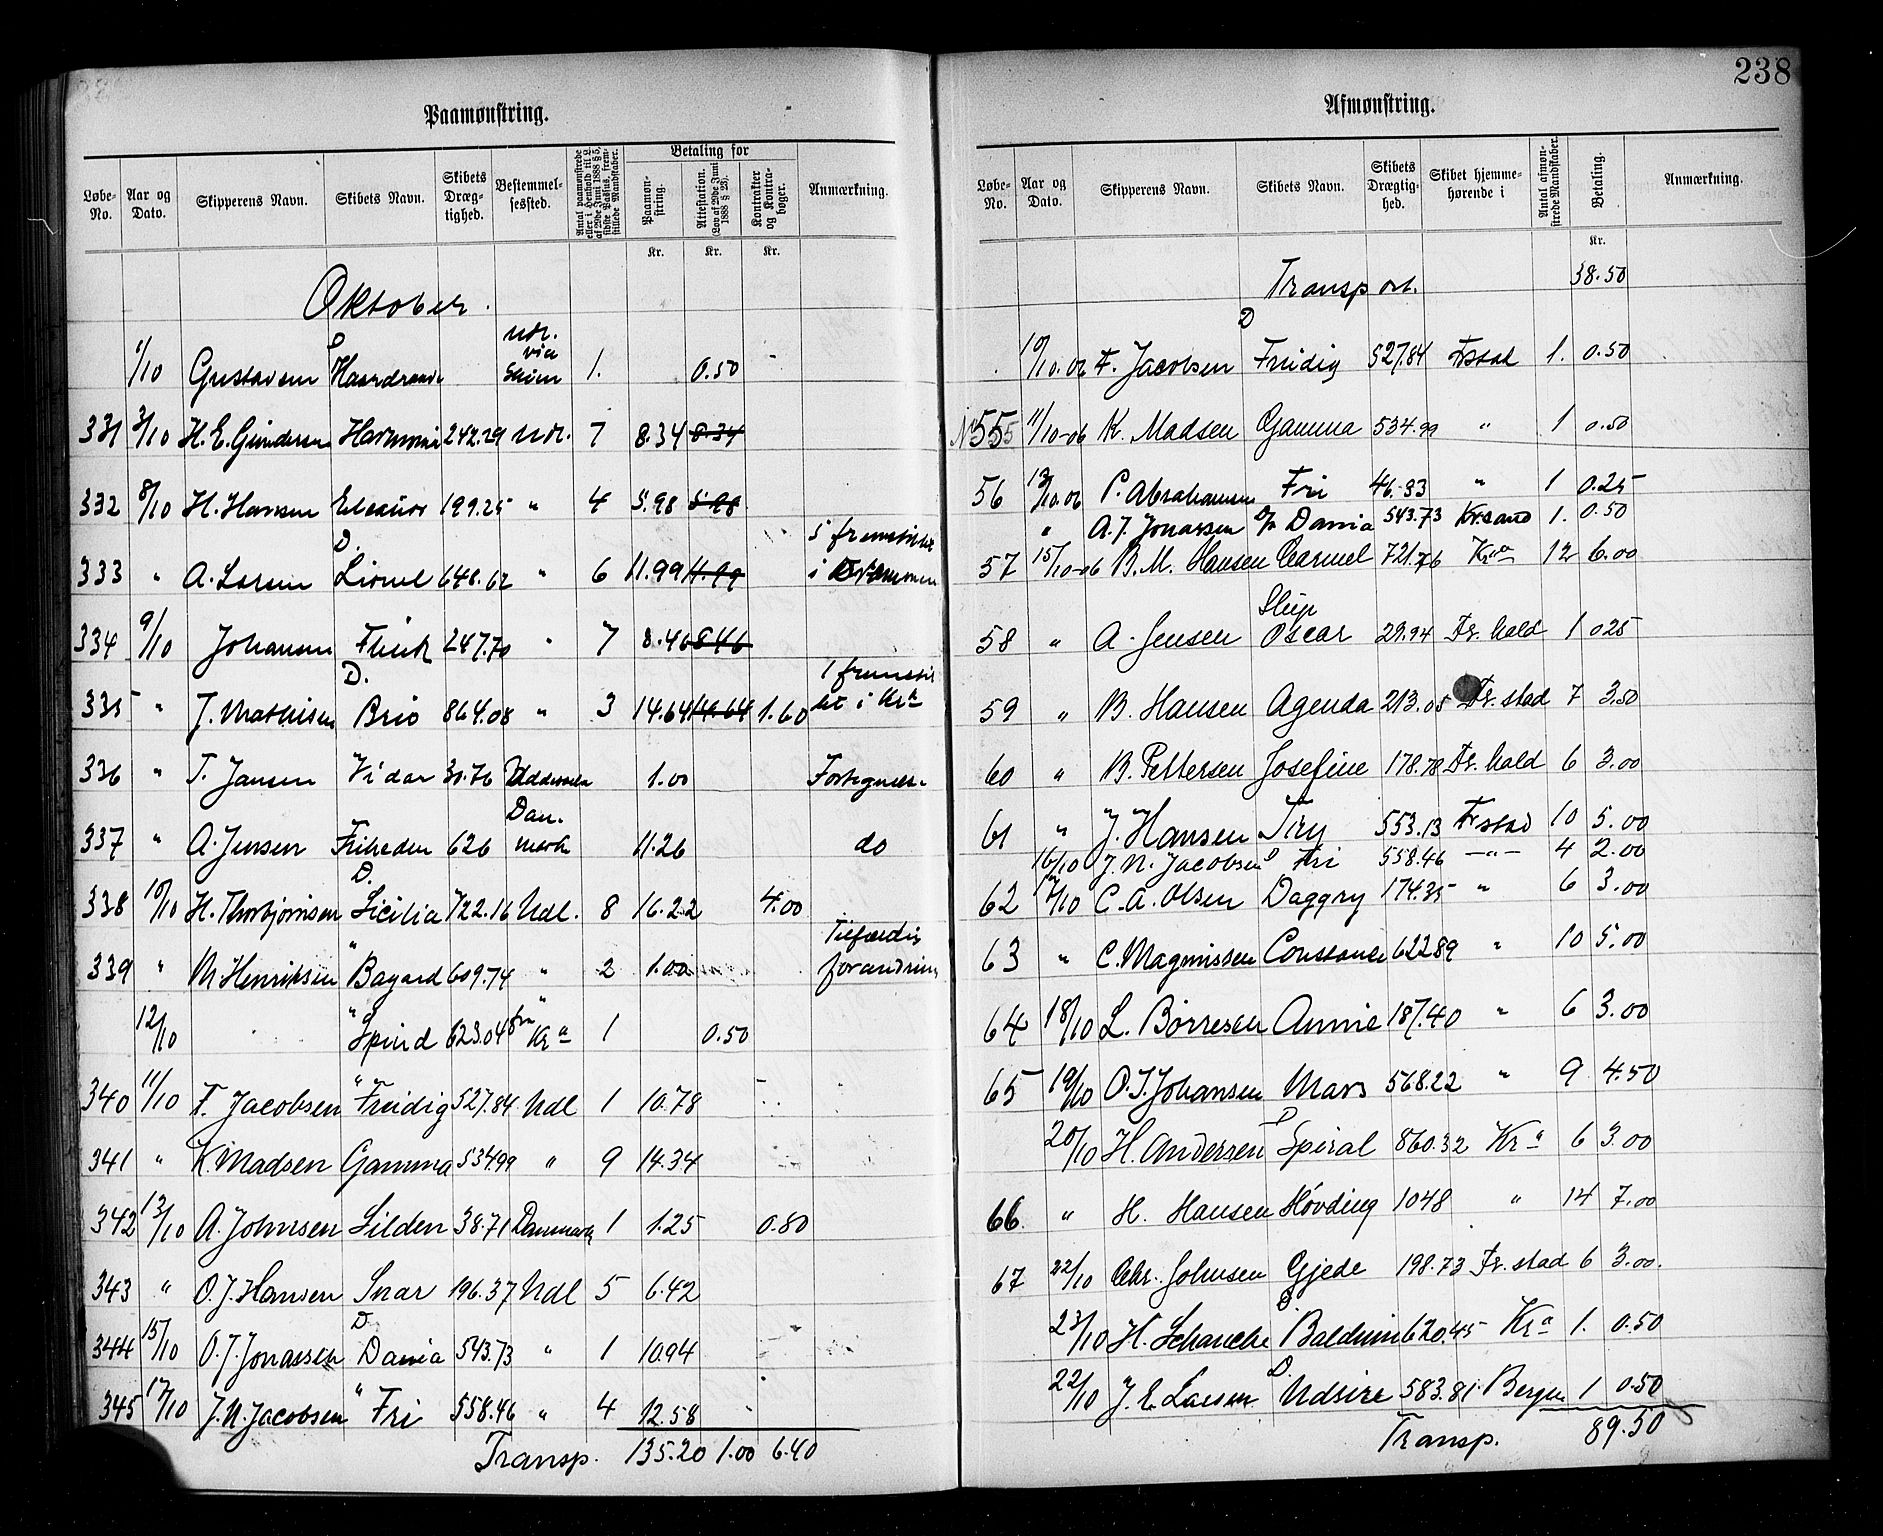 Paamønstring.
Løbe-No. Aar og Dato. Skipperens Navn. Skibets Navn. Skibets Dræg-tighed. Bestemmel-sessted. Betaling for Paamøn-string. Attestation. (Lov af 29de Juni 1888 § 28). Kontrakter og Kontra-bøger. Anmærkning.
Kr. Kr. Kr.
Oktober.
1/10 Gustavsen 1. 0.50
331 3/10 H. E. Gundersen Harmonie 242.29 Udl. 7 8.34 8.34
332 8/10 H. Hansen 199.25 " 4 5.98 5.98
333 " A. Larsen D. Lionel 648.62 " 6 11.99 11.99 5 fremstillet i Drammen
334 9/10 Johansen Flink 247.70 " 7 8.46 8.46
335 " J. Mathisen D. Brio 864.08 " 3 14.64 14.64 1.60 1 fremstillet i Kra
336 " T. Jansen Vidar 30.76 Uddevalla 1.00
337 " A. Jensen Friheden 626 Danmark 11.26 do
338 10/10 H. Thorbjørnsen D. Sicilia 722.16 Udl. 8 16.22 4.00
339 " M Henriksen " Bayard 609.74 " 2 1.00 Tilfældig forandring
12/10 " Spind 623.04 fra Kra 1 0.50
340 11/10 F. Jacobsen " Freidig 527.84 Udl 1 10.78
341 " K. Madsen Gamma 534.99 " 9 14.34
342 13/10 A. Johnsen Silden 38.71 Danmark 1 1.25 0.80
343 " O. J. Hansen Snar 196.37 Udl 5 6.42
344 15/10 O. J. Jonassen D. Dania 543.73 " 1 10.94
345 17/10 J. N. Jacobsen " Fri 558.46 " 4 12.58
Transp. 135.20 1.00 6.40
238
Afmønstring.
Løbe-No. Aar og Dato. Skipperens Navn. Skibets Navn. Skibets Drægtig-hed. Skibet hjemme-hørende i Antal afmøn-strede Mandskaber. Betaling. Anmærkning.
Kr.
Transport. 38.50
10/10.06 F. Jacobsen D Freidig 527.84 Frstad 1. 0.50
No 555 11/10-06 K. Madsen Gamma 534.99 " 1 0.50
56 P. Abrahamsen Fri 46.33 " 1 0.25
" A. J. Jonassen Dania 543.73 Kr.sand 1. 0.50
57 15/10-06 B. M. Hansen Carmel 721.76 Kra 12 6.00
58 " A. Jensen Slup Oscar 29.94 Fr. hald 1 025
59 " B. Hansen Agenda 213.05 Fr. stad 7 3.50
60 " B. Pettersen Josefine 178.78 Fr. hald 6 3.00
61 " J. Hansen 553.13 Frstad 10 5.00
16/10 J. N. Jacobsen D Fri 558.46 -"- 4 2.00
62 17/10 C. A. Olsen Daggry 174.35 " 6 3.00
63 " C. Magnussen Constance 622.89 " 10 5.00
64 18/10 L. Børresen Annie 187.40 " 6 3.00
65 19/10 O. J. Johansen Mars 568.22 " 9 4.50
20/10 H. Andersen D Spiral 860.32 Kra 6 3.00
66. " H. Hansen Høvding 1048 " 14 7.00
67 22/10 Chr. Johnsen Gjede 198.73 Fr. stad 6 3.00.
23/10 H. Schanche D Baldwin 620.45 Kra 1. 0.50
22/10 J. E. Larsen D. Udsire 583.81. Bergen 1 0.50
Transp. 89.50